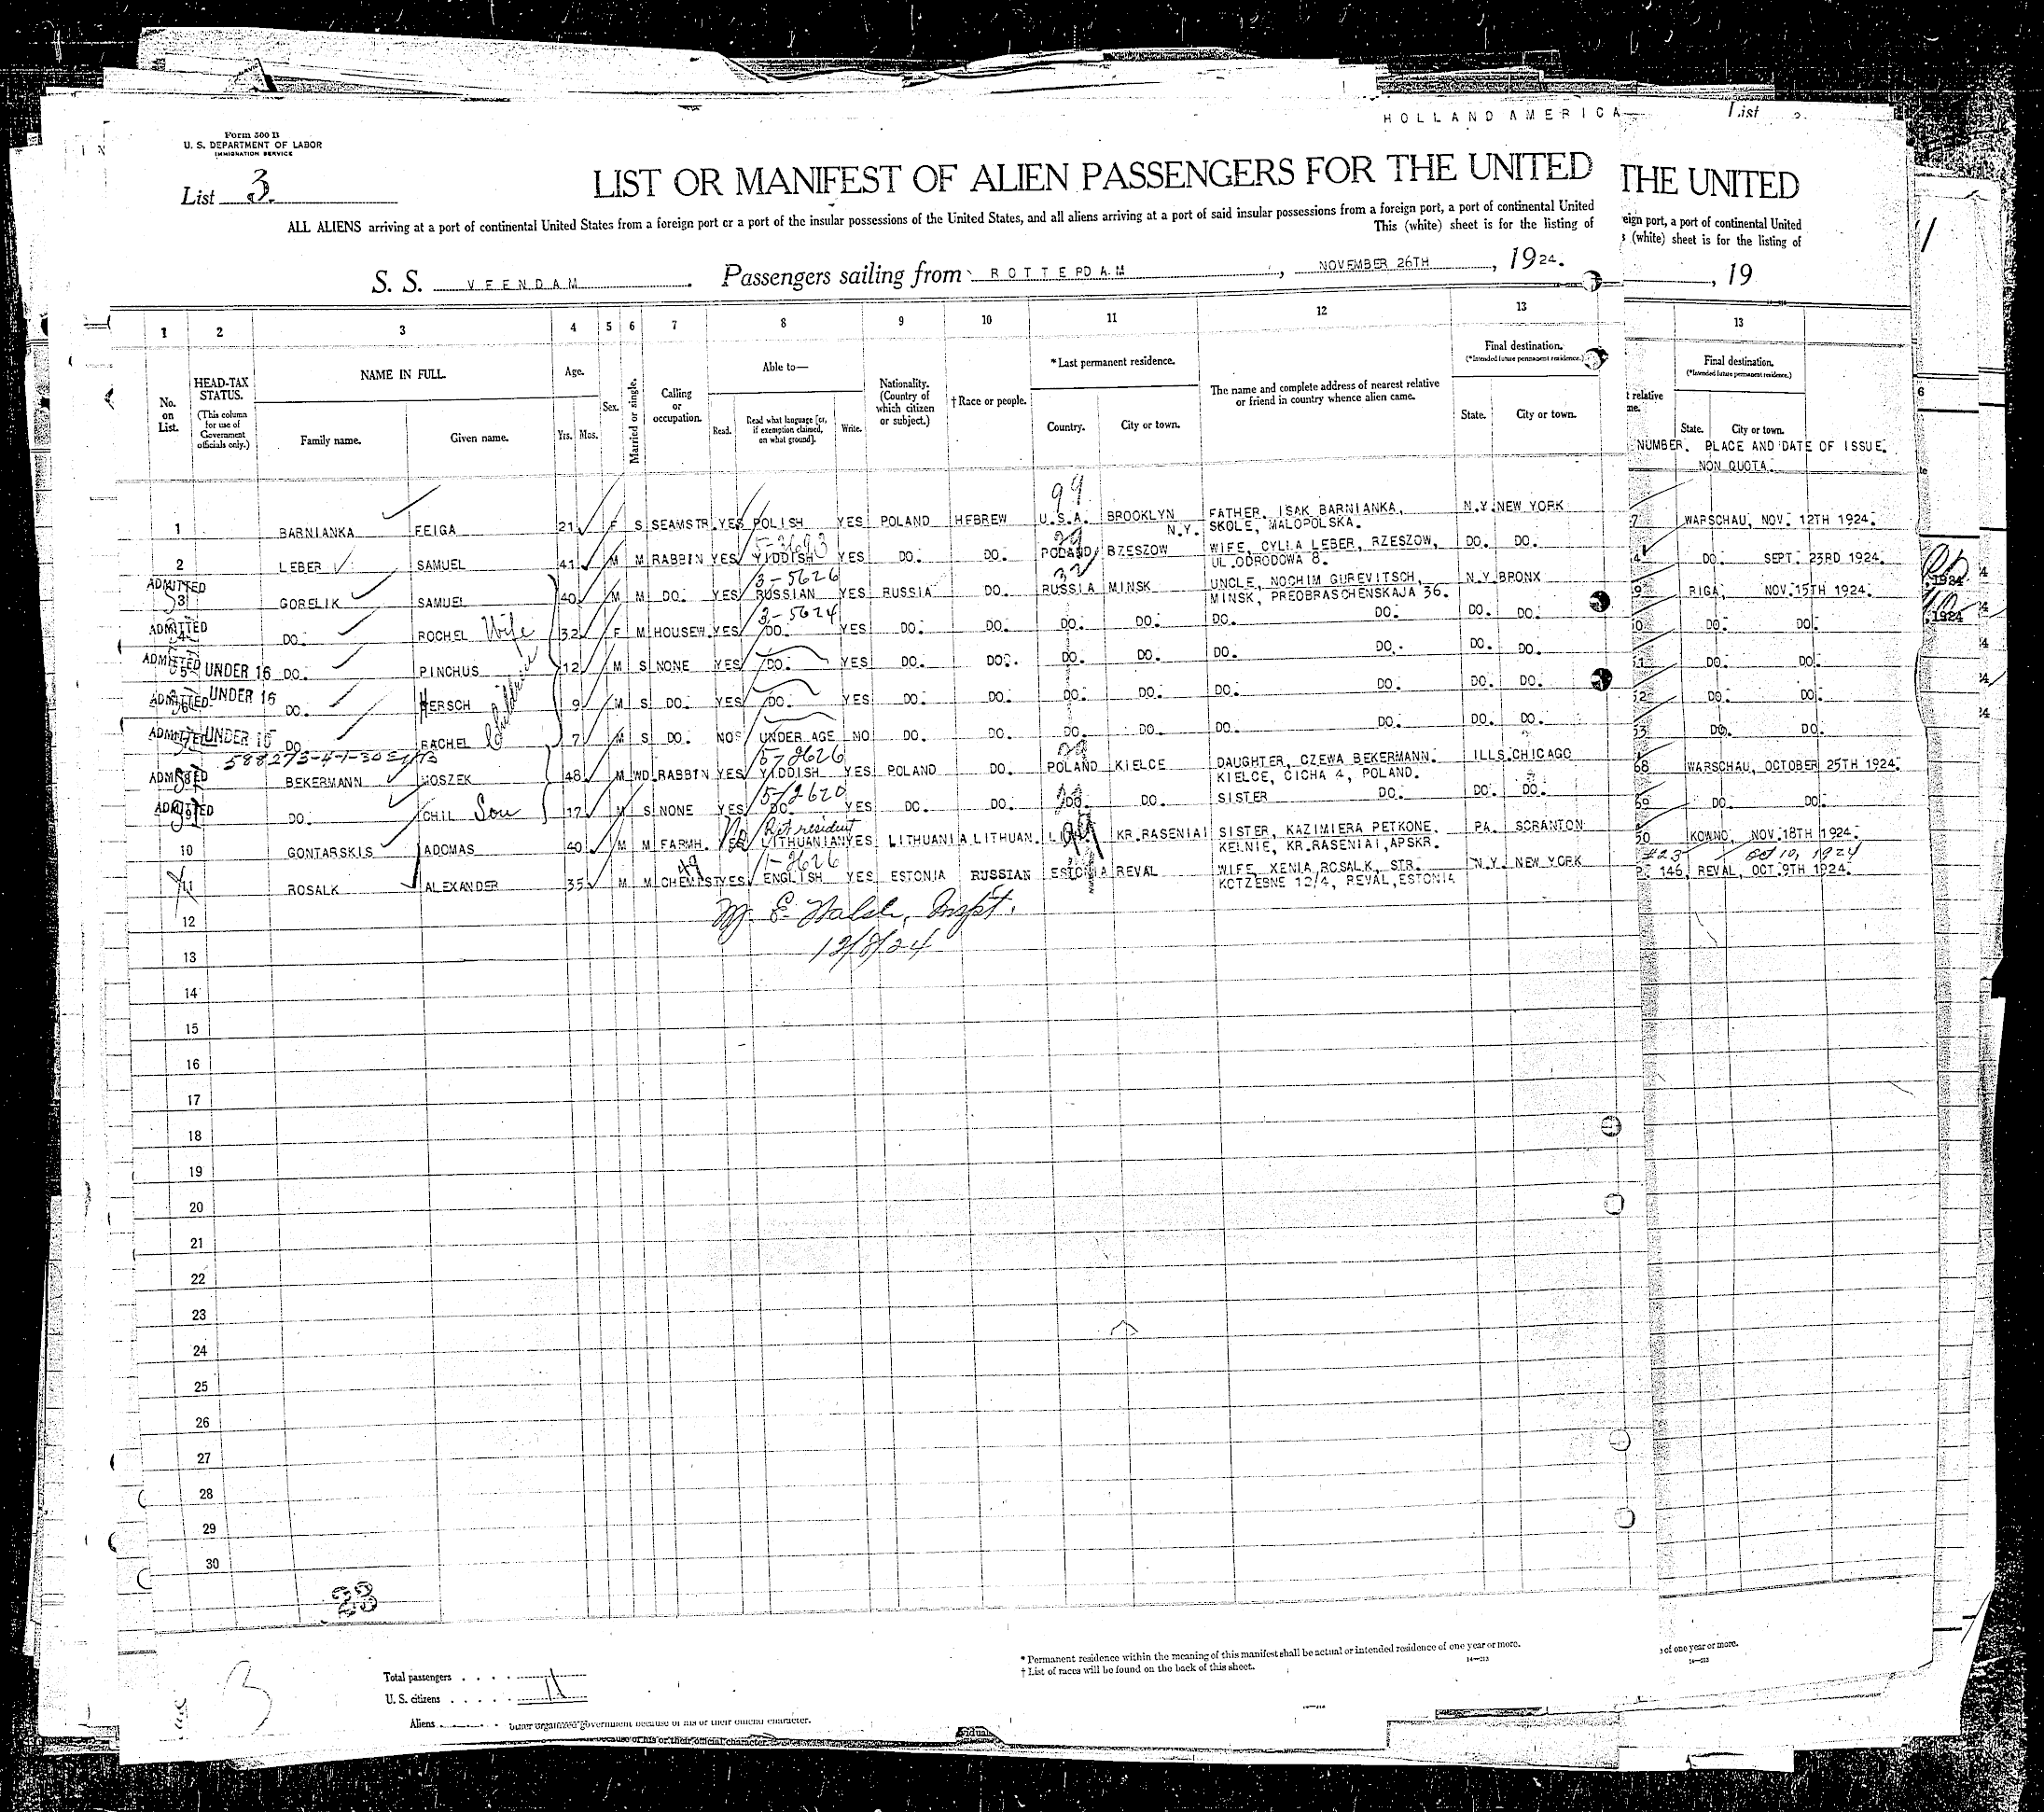 HOLLAND AMERICA
List
Form 500 B
U. S. DEPARTMENT OF LABOR
IMMIGRATION SERVICE
List 3.
LIST OR MANIFEST OF ALIEN PASSENGERS FOR THE UNITED
THE UNITED
ALL ALIENS arriving at a port of continental United States from a foreign port or a port of the insular possessions of the United States, and all aliens arriving at a port of said insular possessions from a foreign port, a port of continental United
eign port, a port of continental United
This (white) sheet is for the listing of
(white) sheet is for the listing of
S. S. VEENDAM. Passengers sailing from ROTTERDAM, NOVEMBER 26TH, 1924.
, 19
1 2 3 4 5 6 7 8 9 10 11 12 13
13
No. on List.
HEAD-TAX STATUS.
(This column for use of Government officials only.)
NAME IN FULL.
Family name. Given name.
Age.
Yrs. Mos.
Sex.
Married or single.
Calling or occupation.
Able to—
Read. Read what language [or, if exemption claimed, on what ground]. Write.
Nationality. (Country of which citizen or subject.)
†Race or people.
*Last permanent residence.
Country. City or town.
The name and complete address of nearest relative or friend in country whence alien came.
Final destination.
(*Intended future permanent residence.)
State. City or town.
relative
Final destination.
(*Intended future permanent residence.)
State. City or town.
NUMBER. PLACE AND DATE OF ISSUE.
NON QUOTA.
99
1 BARNIANKA FEIGA 21 F S SEAMSTR. YES POLISH YES POLAND HEBREW U.S.A. BROOKLYN N.Y. FATHER. ISAK BARNIANKA, SKOLE, MALOPOLSKA. N.Y. NEW YORK
7 WARSCHAU, NOV. 12TH 1924.
2 LEBER SAMUEL 41 M M RABBIN YES YIDDISH YES DO. DO. POLAND BZESZOW WIFE, CYLLA LEBER, RZESZOW, UL.ODRODOWA 8. DO. DO.
4 DO. SEPT. 23RD 1924.
3-5626
ADMITTED 3 GORELIK SAMUEL 40 M M DO. YES RUSSIAN YES RUSSIA DO. RUSSIA MINSK UNCLE, NOCHIM GUREVITSCH, MINSK, PREOBRASCHENSKAJA 36. N.Y. BRONX
9 RIGA, NOV.15TH 1924.
3-5624
ADMITTED 4 DO. ROCHEL Wife 32 F M HOUSEW. YES DO. YES DO. DO. DO. DO. DO. DO. DO. DO.
0 DO. DO.
ADMITTED 5 UNDER 16 DO. PINCHUS 12 M S NONE YES DO. YES DO. DO. DO. DO. DO. DO. DO. DO.
51 DO. DO.
ADMITTED 6 UNDER 16 DO. HERSCH Children 9 M S DO. YES DO. YES DO. DO. DO. DO. DO. DO. DO. DO.
52 DO. DO.
ADMITTED 7 UNDER 16 DO. RACHEL 7 M S DO. NO UNDER AGE NO DO. DO. DO. DO. DO. DO. DO. DO.
53 DO. DO.
5-2626
ADMITTED 8 BEKERMANN MOSZEK 48 M WD. RABBIN YES YIDDISH YES POLAND DO. POLAND KIELCE DAUGHTER, CZEWA BEKERMANN. KIELCE, CICHA 4, POLAND. ILLS. CHICAGO
68 WARSCHAU, OCTOBER 25TH 1924.
5-2620
ADMITTED 9 DO. CHIL Son 17 M S NONE YES DO. YES DO. DO. DO. DO. SISTER DO. DO. DO.
59 DO. DO.
Ret resident
10 GONTARSKIS ADOMAS 40 M M FARMH. YES LITHUANIAN YES LITHUANIA LITHUAN. KR.RASENIAI SISTER, KAZIMIERA PETKONE. KELNIE, KR.RASENIAI,APSKR. PA. SCRANTON
50 KOWNO, NOV.18TH 1924.
#23 Oct 10, 1924
1-2626
11 ROSALK ALEXANDER 35 M M CHEMIST YES ENGLISH YES ESTONIA RUSSIAN ESTONIA REVAL WIFE, XENIA ROSALK, STR. KOTZEBNE 12/4, REVAL,ESTONIA N.Y. NEW YORK
146, REVAL, OCT.9TH 1924.
12
13
12/8/24
14
15
16
17
18
19
20
21
22
23
24
25
26
27
28
29
30
23
3
Total passengers
U. S. citizens 11
Aliens
* Permanent residence within the meaning of this manifest shall be actual or intended residence of one year or more.
† List of races will be found on the back of this sheet.
14—213
of one year or more.
14—213
other organized government because of his or their official character.
because of his or their official character.